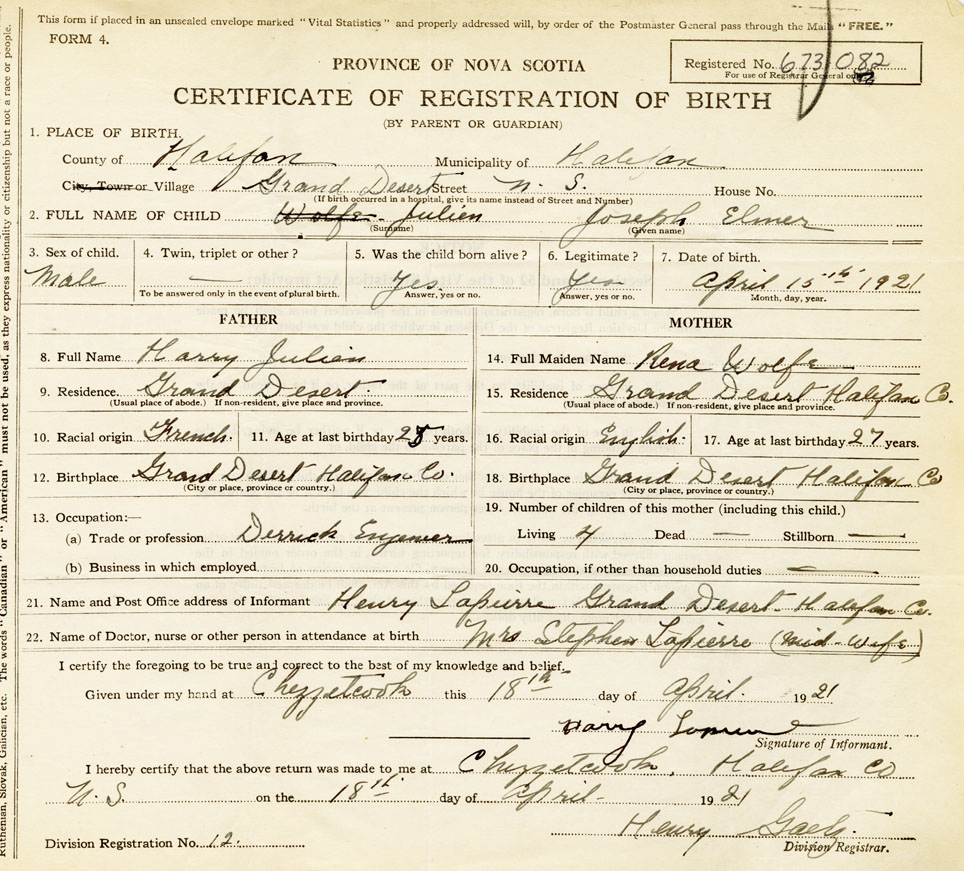 This form if placed in an unsealed envelope marked "Vital Statistics" and properly addressed will, by order of the Postmaster General pass through the Mails "FREE."
FORM 4.
Registered No. 673082
For use of Registrar General only
PROVINCE OF NOVA SCOTIA
CERTIFICATE OF REGISTRATION OF BIRTH
(BY PARENT OR GUARDIAN)
1. PLACE OF BIRTH.
County of Halifax Municipality of Halifax
City, Town or Village Grand Desert Street N. S. House No.
(If birth occurred in a hospital, give its name instead of Street and Number)
2. FULL NAME OF CHILD Wolfe Julien Joseph Elmer
(Surname) (Given name)
3. Sex of child. 4. Twin, triplet or other? 5. Was the child born alive? 6. Legitimate? 7. Date of birth.
Male — Yes. Yes April 15th 1921
To be answered only in the event of plural birth. Answer, yes or no. Answer, yes or no. Month, day, year.
FATHER MOTHER
8. Full Name Harry Julien 14. Full Maiden Name Rena Wolfe
9. Residence Grand Desert. 15. Residence Grand Desert Halifax Co.
(Usual place of abode.) If non-resident, give place and province. (Usual place of abode.) If non-resident, give place and province.
10. Racial origin French. 11. Age at last birthday years. 16. Racial origin English. 17. Age at last birthday 27 years.
12. Birthplace Grand Desert Halifax Co. 18. Birthplace Grand Desert Halifax Co
(City or place, province or country.) (City or place, province or country.)
13. Occupation:— 19. Number of children of this mother (including this child.)
(a) Trade or profession. Derrick Engineer Living 4 Dead — Stillborn —
(b) Business in which employed 20. Occupation, if other than household duties —
21. Name and Post Office address of Informant Henry Lapierre Grand Desert - Halifax Co.
22. Name of Doctor, nurse or other person in attendance at birth Mrs Stephen Lapierre (mid-wife)
I certify the foregoing to be true and correct to the best of my knowledge and belief.
Given under my hand at Chezzetcook this 18th day of April. 1921
Signature of Informant.
I hereby certify that the above return was made to me at Chezzetcook, Halifax Co
N. S. on the 18th day of April - 1921
Henry Gaetz.
Division Registration No. 12. Division Registrar.
Ruthenian, Slovak, Galician, etc. The words "Canadian" or "American" must not be used, as they express nationality or citizenship but not a race or people.